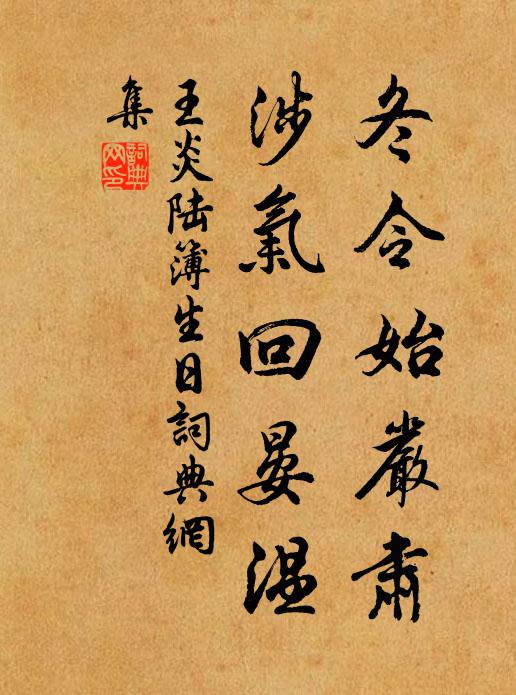 冬令始嚴肅
涉氣回晏温
王炎陸簿生日詞典網
集
詞典
网印